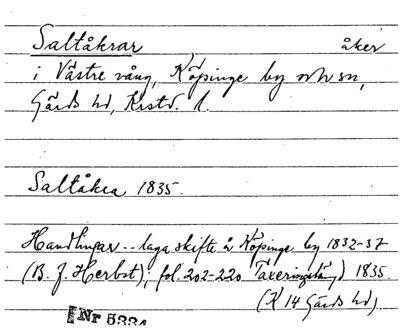 Saltåkrar åker
i Västre vång, Köpinge by och sn,
Gärds hd, Krstd. l.
Saltåkra 1835.
Handlingar .. laga skifte å Köpinge by 1832-37
(B. J. Herbst); fol. 202-220 1835.
(K 14 Gärds hd)
Nr